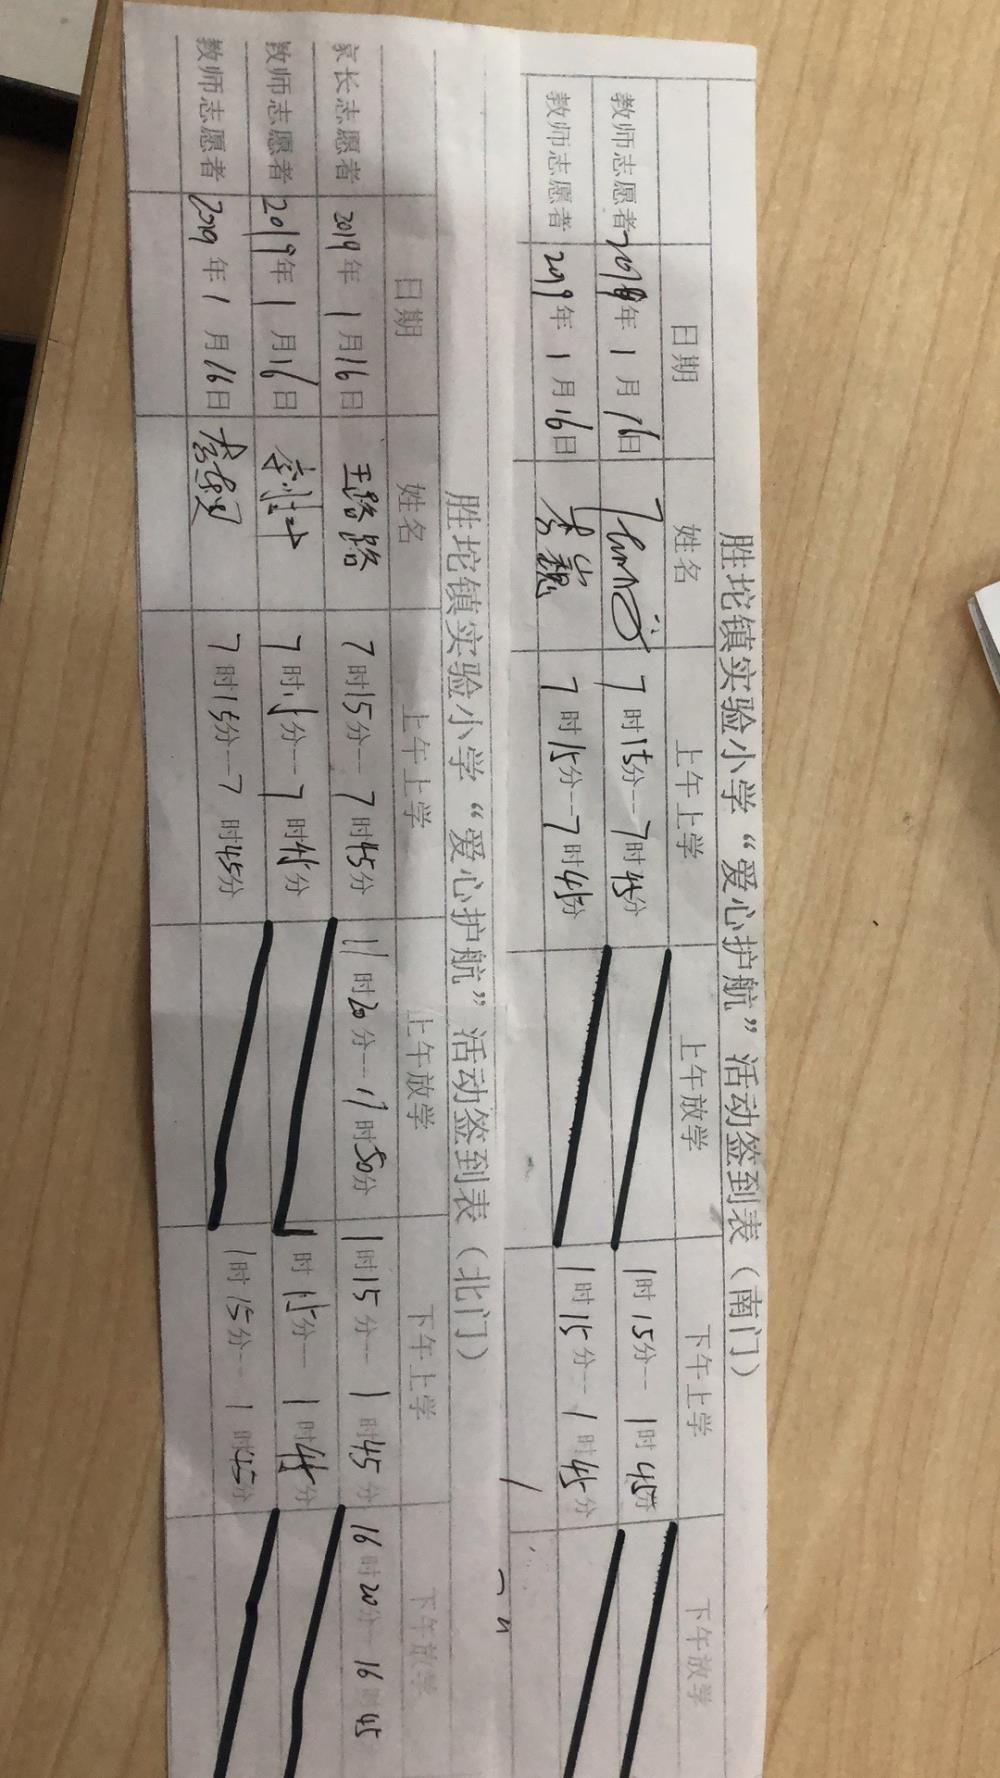 胜坨镇实验小学“爱心护航”活动签到表（南门）
日期 姓名 上午上学 上午放学 下午上学 下午放学
教师志愿者 2019年1月16日 7时15分--7时45分 1时15分--1时45分
教师志愿者 2019年1月16日 7时15分--7时45分 1时15分--1时45分
胜坨镇实验小学“爱心护航”活动签到表（北门）
日期 姓名 上午上学 上午放学 下午上学 下午放学
家长志愿者 2019年1月16日 王路路 7时15分--7时45分 11时20分--11时50分 1时15分--1时45分 16时20分--16时45
教师志愿者 2019年1月16日 7时15分--7时45分 1时15分--1时45分
教师志愿者 2019年1月16日 7时15分--7时45分 1时15分--1时45分